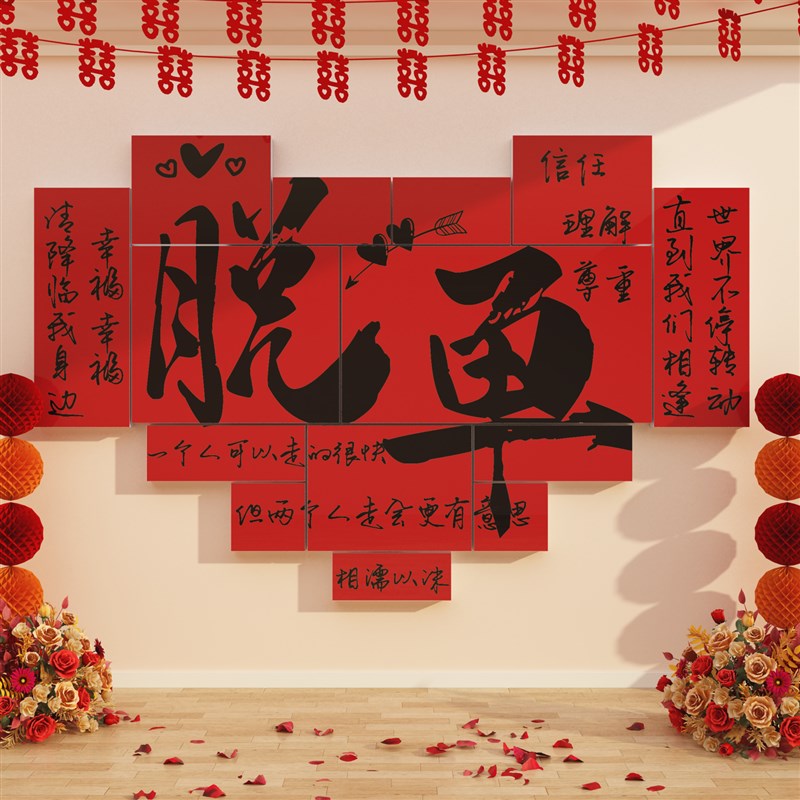 囍 囍 囍 囍 囍 囍 囍 囍 囍 囍 囍 囍 囍 囍
脱单
信任
理解
尊重
幸福幸福
请降临我身边
世界不停转动
直到我们相逢
一个人可以走的很快
但两个人走会更有意思
相濡以沫